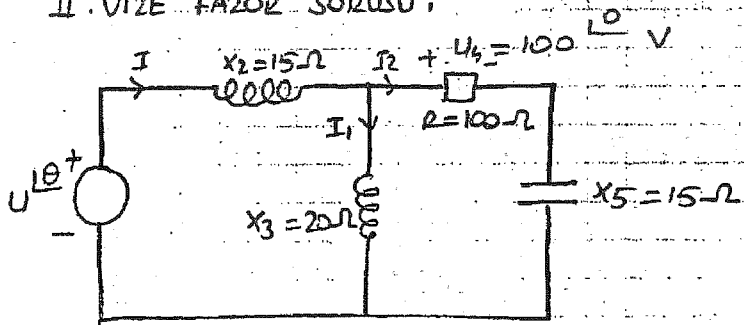 II. VİZE FAZÖR SORUSU:
I
X2=15Ω
I2
+ U4 = 100∠0 V
-
R=100Ω
I1
U∠θ
+
-
X3=20Ω
X5=15Ω